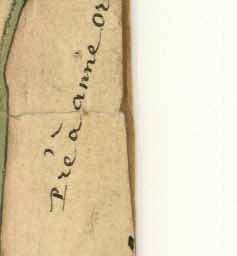 Pré à anne or